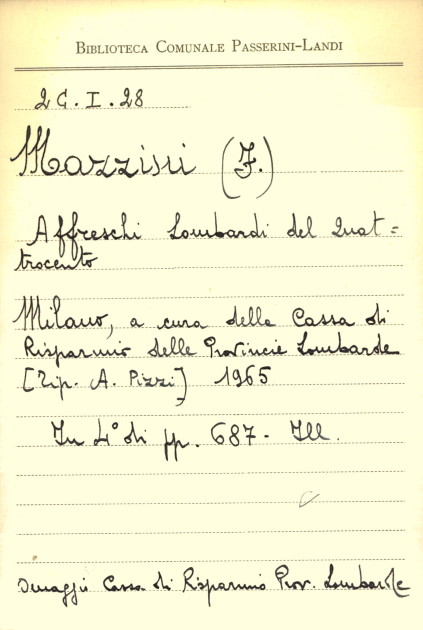 BIBLIOTECA COMUNALE PASSERINI-LANDI
2C.I.28
Mazzini (F.)
Affreschi Lombardi del Quat=
trocento
Milano, a cura della Cassa di
Risparmio delle Provincie Lombarde
[Tip. A. Pizzi] 1965
In 4° di pp. 687 - Ill.
Omaggio Cassa di Risparmio Prov. Lombarde